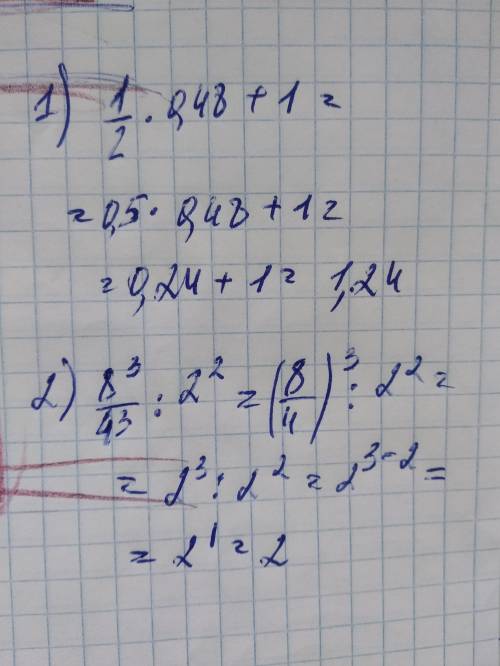 1) 1/2 · 0,48 + 1 =
= 0,5 · 0,48 + 1 =
= 0,24 + 1 = 1,24
2) 8³/4³ : 2² = (8/4)³ : 2² =
= 2³ : 2² = 2³⁻² =
= 2¹ = 2